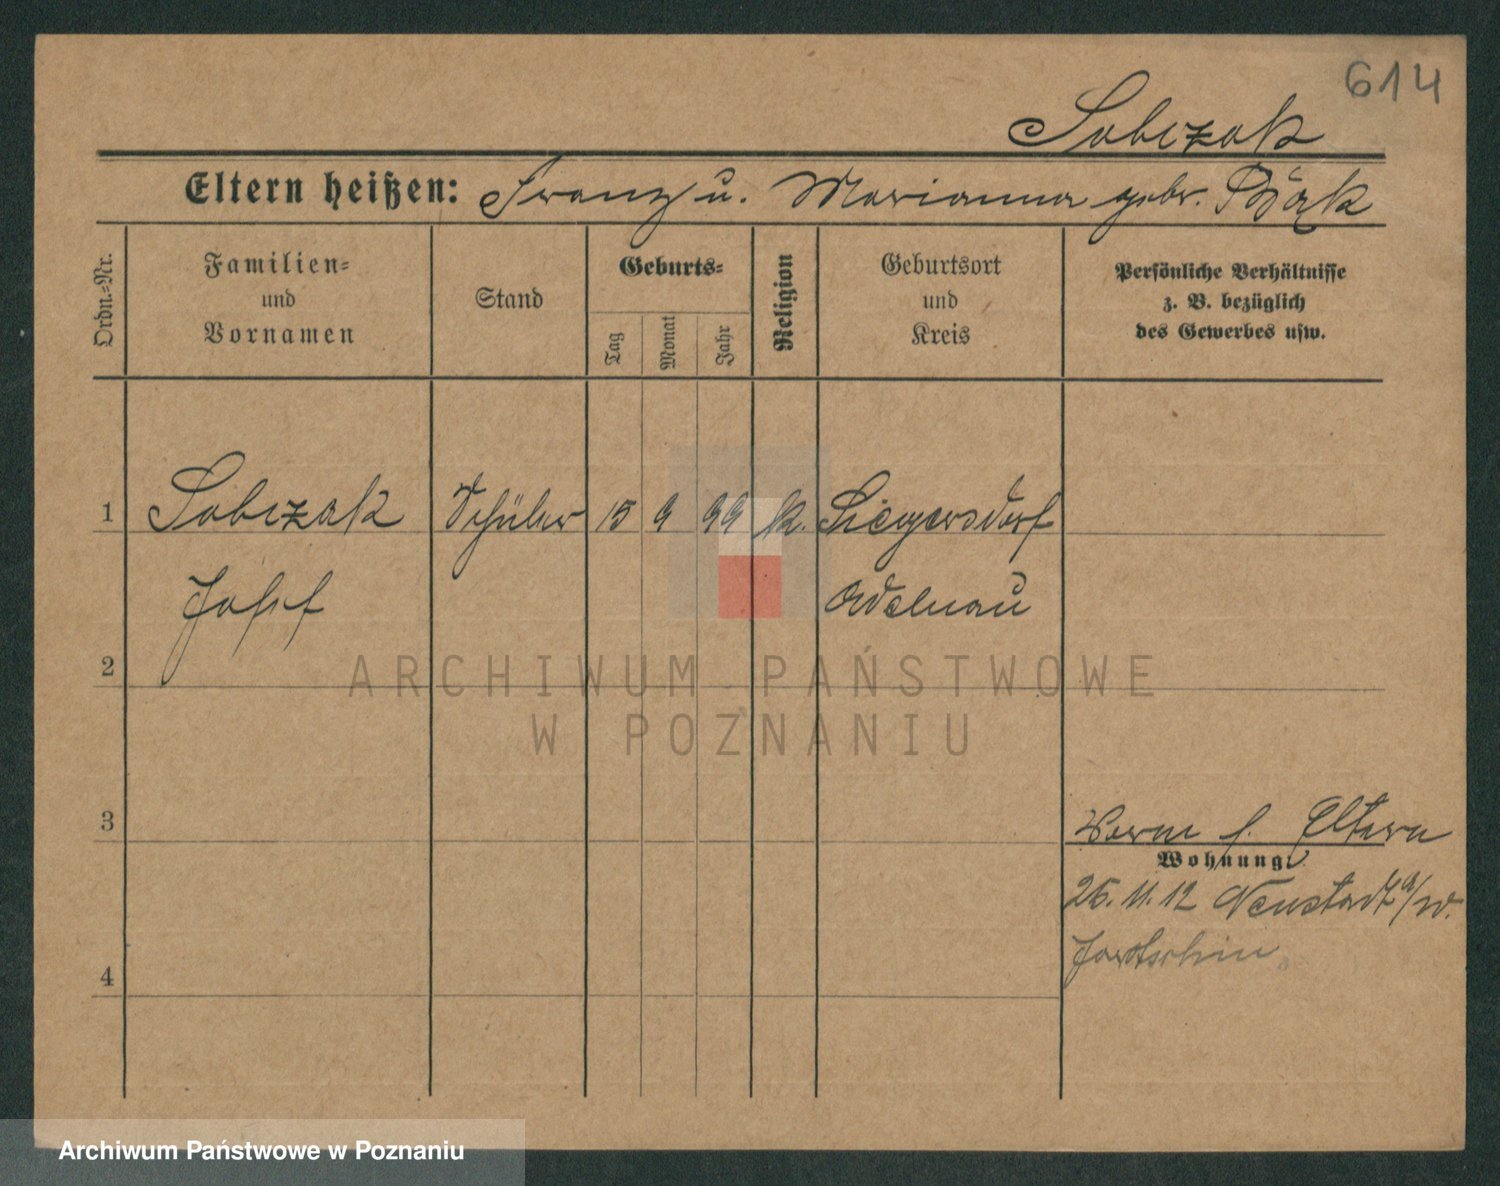 614
Sobczak
Eltern heißen: Franz u. Marianna gebr. Bąk
Ordn.-Nr.
Familien-
und
Vornamen
Stand
Geburts-
Tag
Monat
Jahr
Religion
Geburtsort
und
Kreis
Persönliche Verhältnisse
z. B. bezüglich
des Gewerbes usw.
1 Sobczak Schüler 15 9 99 k. Siegersdorf
Josef Adelnau
2
3
Vorne s. Eltern
Wohnung.
26.11.12 Neustadt a/W.
Jarotschin
4
ARCHIWUM PAŃSTWOWE
W POZNANIU
Archiwum Państwowe w Poznaniu